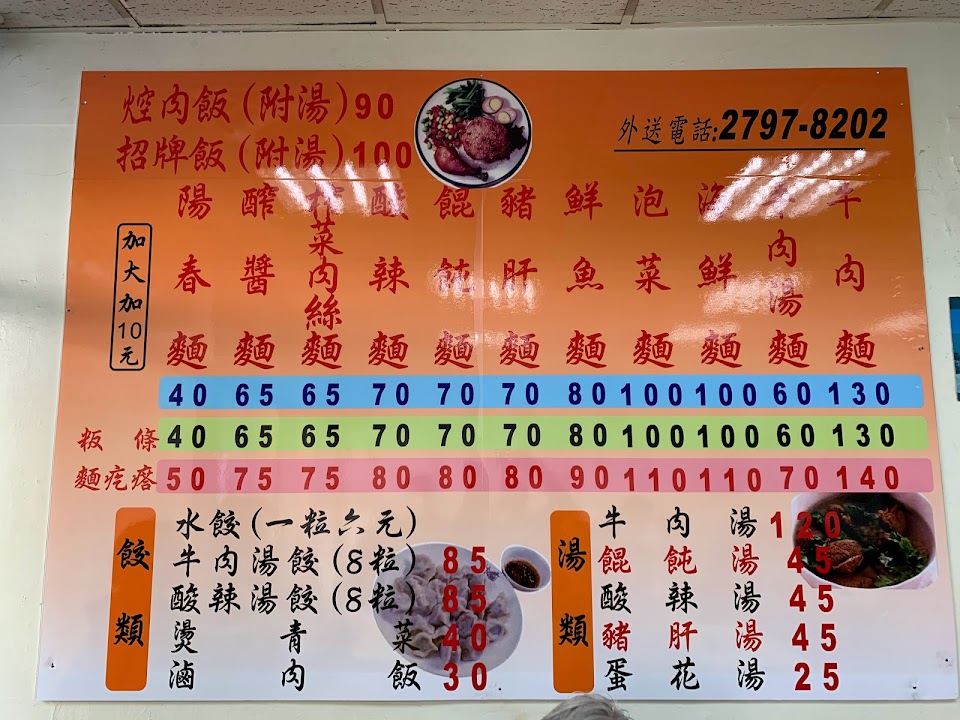 焢肉飯(附湯)90
招牌飯(附湯)100
外送電話:2797-8202
加大加10元
陽春麵
醡醬麵
榨菜肉絲麵
酸辣麵
餛飩麵
豬肝麵
鮮魚麵
泡菜麵
海鮮麵
牛肉湯麵
牛肉麵
40 65 65 70 70 70 80 100 100 60 130
粄條 40 65 65 70 70 70 80 100 100 60 130
麵疙瘩 50 75 75 80 80 80 90 110 110 70 140
餃類
水餃(一粒六元)
牛肉湯餃(8粒) 85
酸辣湯餃(8粒) 85
燙青菜 40
滷肉飯 30
湯類
牛肉湯 120
餛飩湯 45
酸辣湯 45
豬肝湯 45
蛋花湯 25